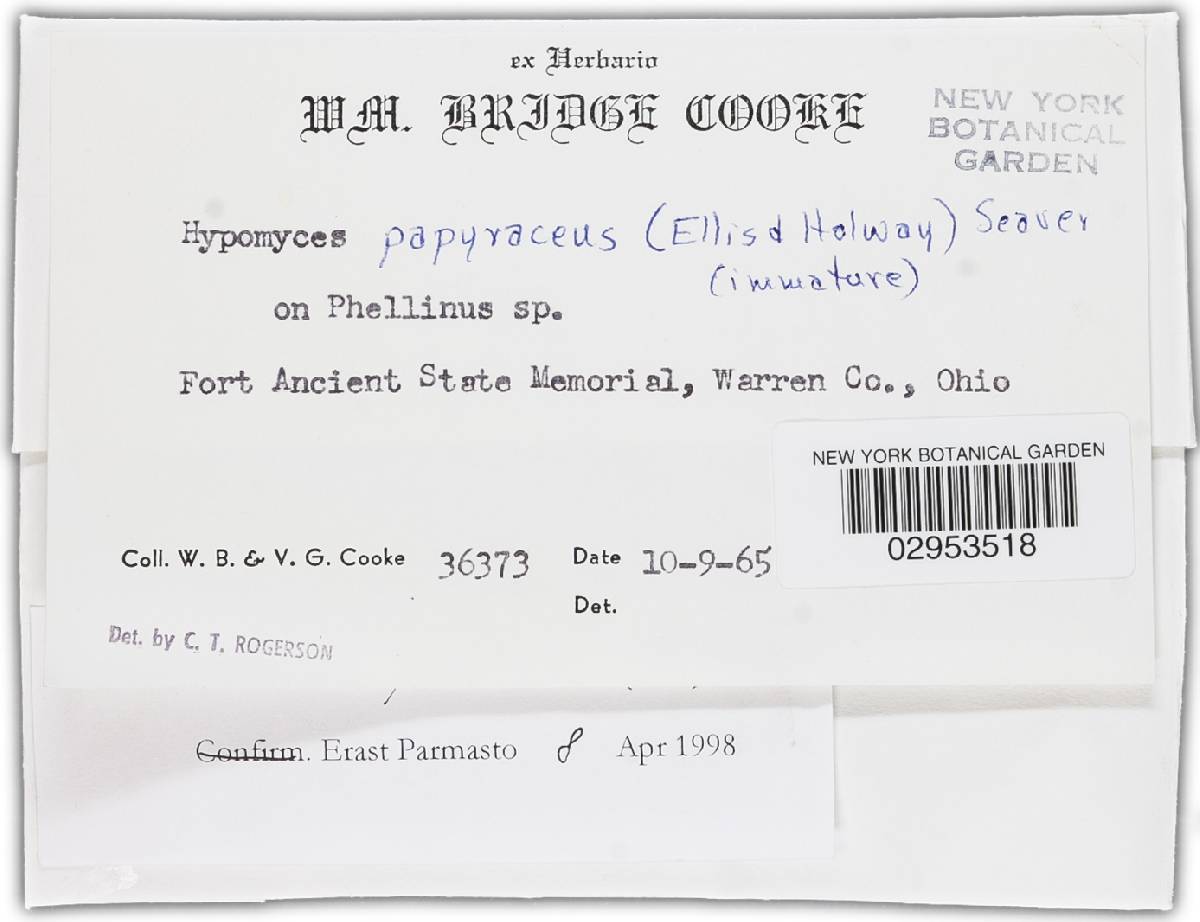 ex Herbario
WM. BRIDGE COOKE
NEW YORK
BOTANICAL
GARDEN
Hypomyces papyraceus (Ellis & Holway) Seaver
(immature)
on Phellinus sp.
Fort Ancient State Memorial, Warren Co., Ohio
NEW YORK BOTANICAL GARDEN
02953518
Coll. W. B. & V. G. Cooke 36373 Date 10-9-65
Det.
Det. by C. T. ROGERSON
Confirm. Erast Parmasto Apr 1998